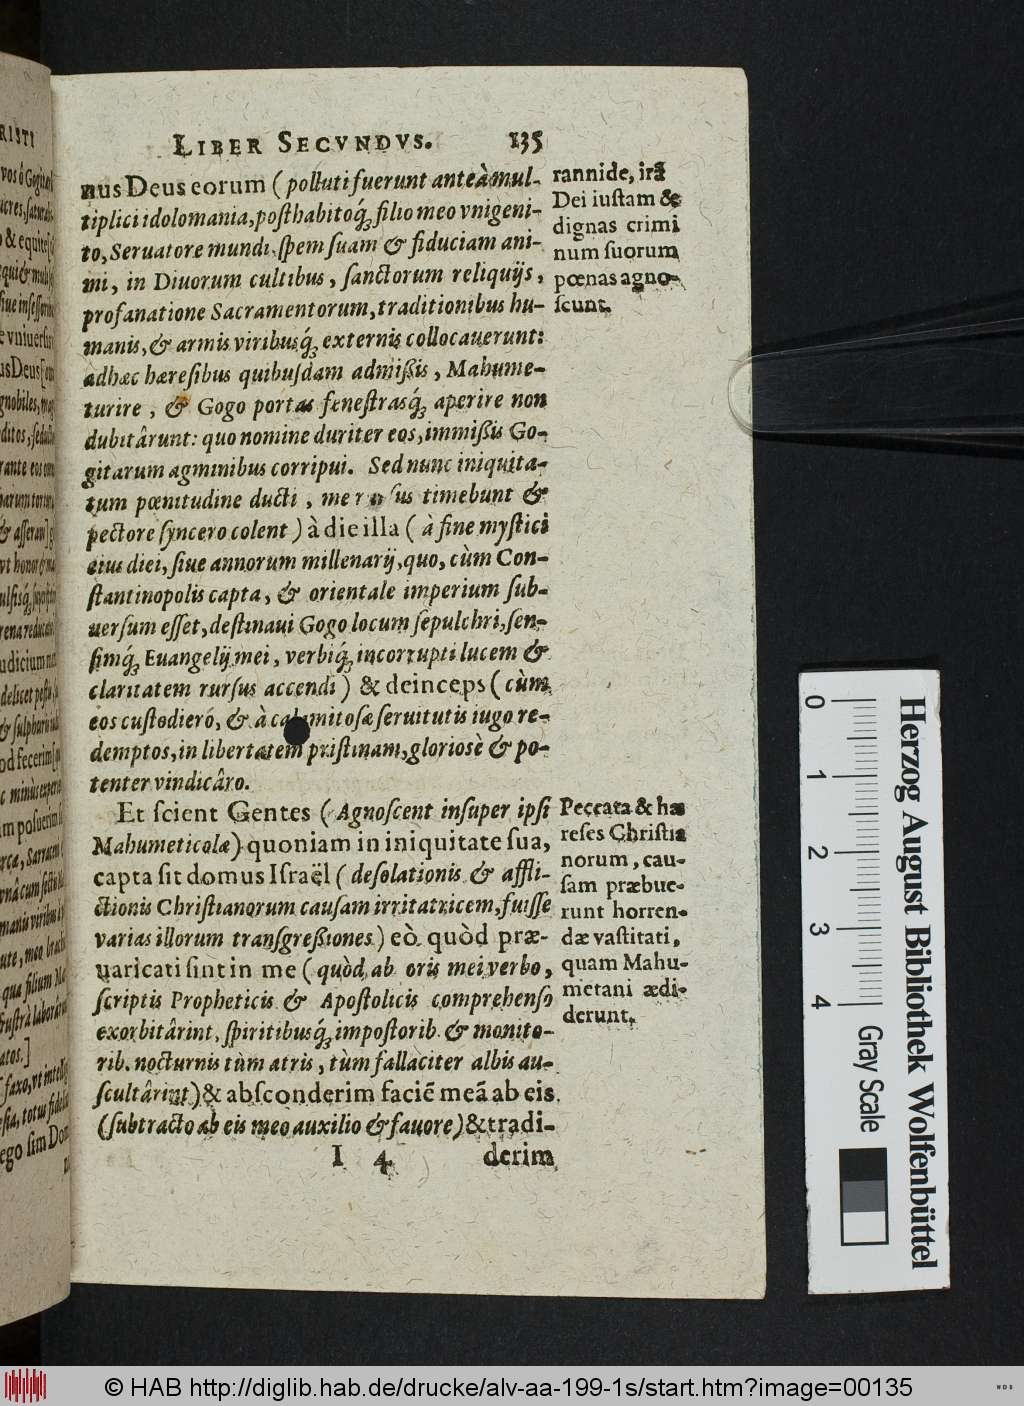 LIBER SECVNDVS. 135
nus Deus eorum (polluti fuerunt anteà mul-
tiplici idolomania, posthabitoq́ꝫ filio meo vnigeni-
to, Seruatore mundi, spem suam & fiduciam ani-
mi, in Diuorum cultibus, sanctorum reliquijs,
profanatione Sacramentorum, traditionibus hu-
manis, & armis viribusq́ꝫ externis collocauerunt:
adhæc hæresibus quibusdam admißis, Mahume-
turire, & Gogo portas fenestrasq́ꝫ aperire non
dubitârunt: quo nomine duriter eos, immißis Go-
gitarum agminibus corripui. Sed nunc iniquita-
tum pœnitudine ducti, me timebunt &
pectore syncero colent) à die illa (à fine mystici
eius diei, siue annorum millenarij, quo, cùm Con-
stantinopolis capta, & orientale imperium sub-
uersum esset, destinaui Gogo locum sepulchri, sen-
simq́ꝫ Euangelij mei, verbiq́ꝫ incorrupti lucem &
claritatem rursus accendi) & deinceps (cùm
eos custodiero, & à calamitosæ seruitutis iugo re-
demptos, in libertatem pristinam, gloriosè & po-
tenter vindicâro.
Et scient Gentes (Agnoscent insuper ipsi
Mahumeticolæ) quoniam in iniquitate sua,
capta sit domus Israël (desolationis & affli-
ctionis Christianorum causam irritatricem, fuisse
varias illorum transgreßiones) eò quòd præ-
uaricati sint in me (quòd ab oris mei verbo,
scriptis Propheticis & Apostolicis comprehenso
exorbitârint, spiritibusq́ꝫ impostorib. & monito-
rib. nocturnis tùm atris, tùm fallaciter albis au-
scultârint) & absconderim faciē meā ab eis
(subtracto ab eis meo auxilio & fauore) & tradi-
I 4 derim
rannide, irā
Dei iustam &
dignas crimi
num suorum
pœnas agno-
scunt.
Peccata & hæ
reses Christia
norum, cau-
sam præbue-
runt horren-
dæ vastitati,
quam Mahu-
metani ædi-
derunt.
RISTI
0 1 2 3 4
Gray Scale
Herzog August Bibliothek Wolfenbüttel
© HAB http://diglib.hab.de/drucke/alv-aa-199-1s/start.htm?image=00135